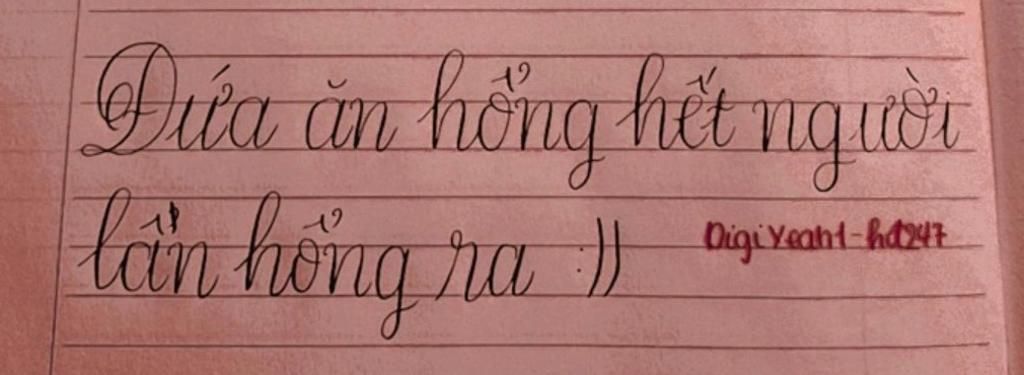 Đứa ăn hổng hết người
lẩn hổng ra :))
DigiYeah1-hd247